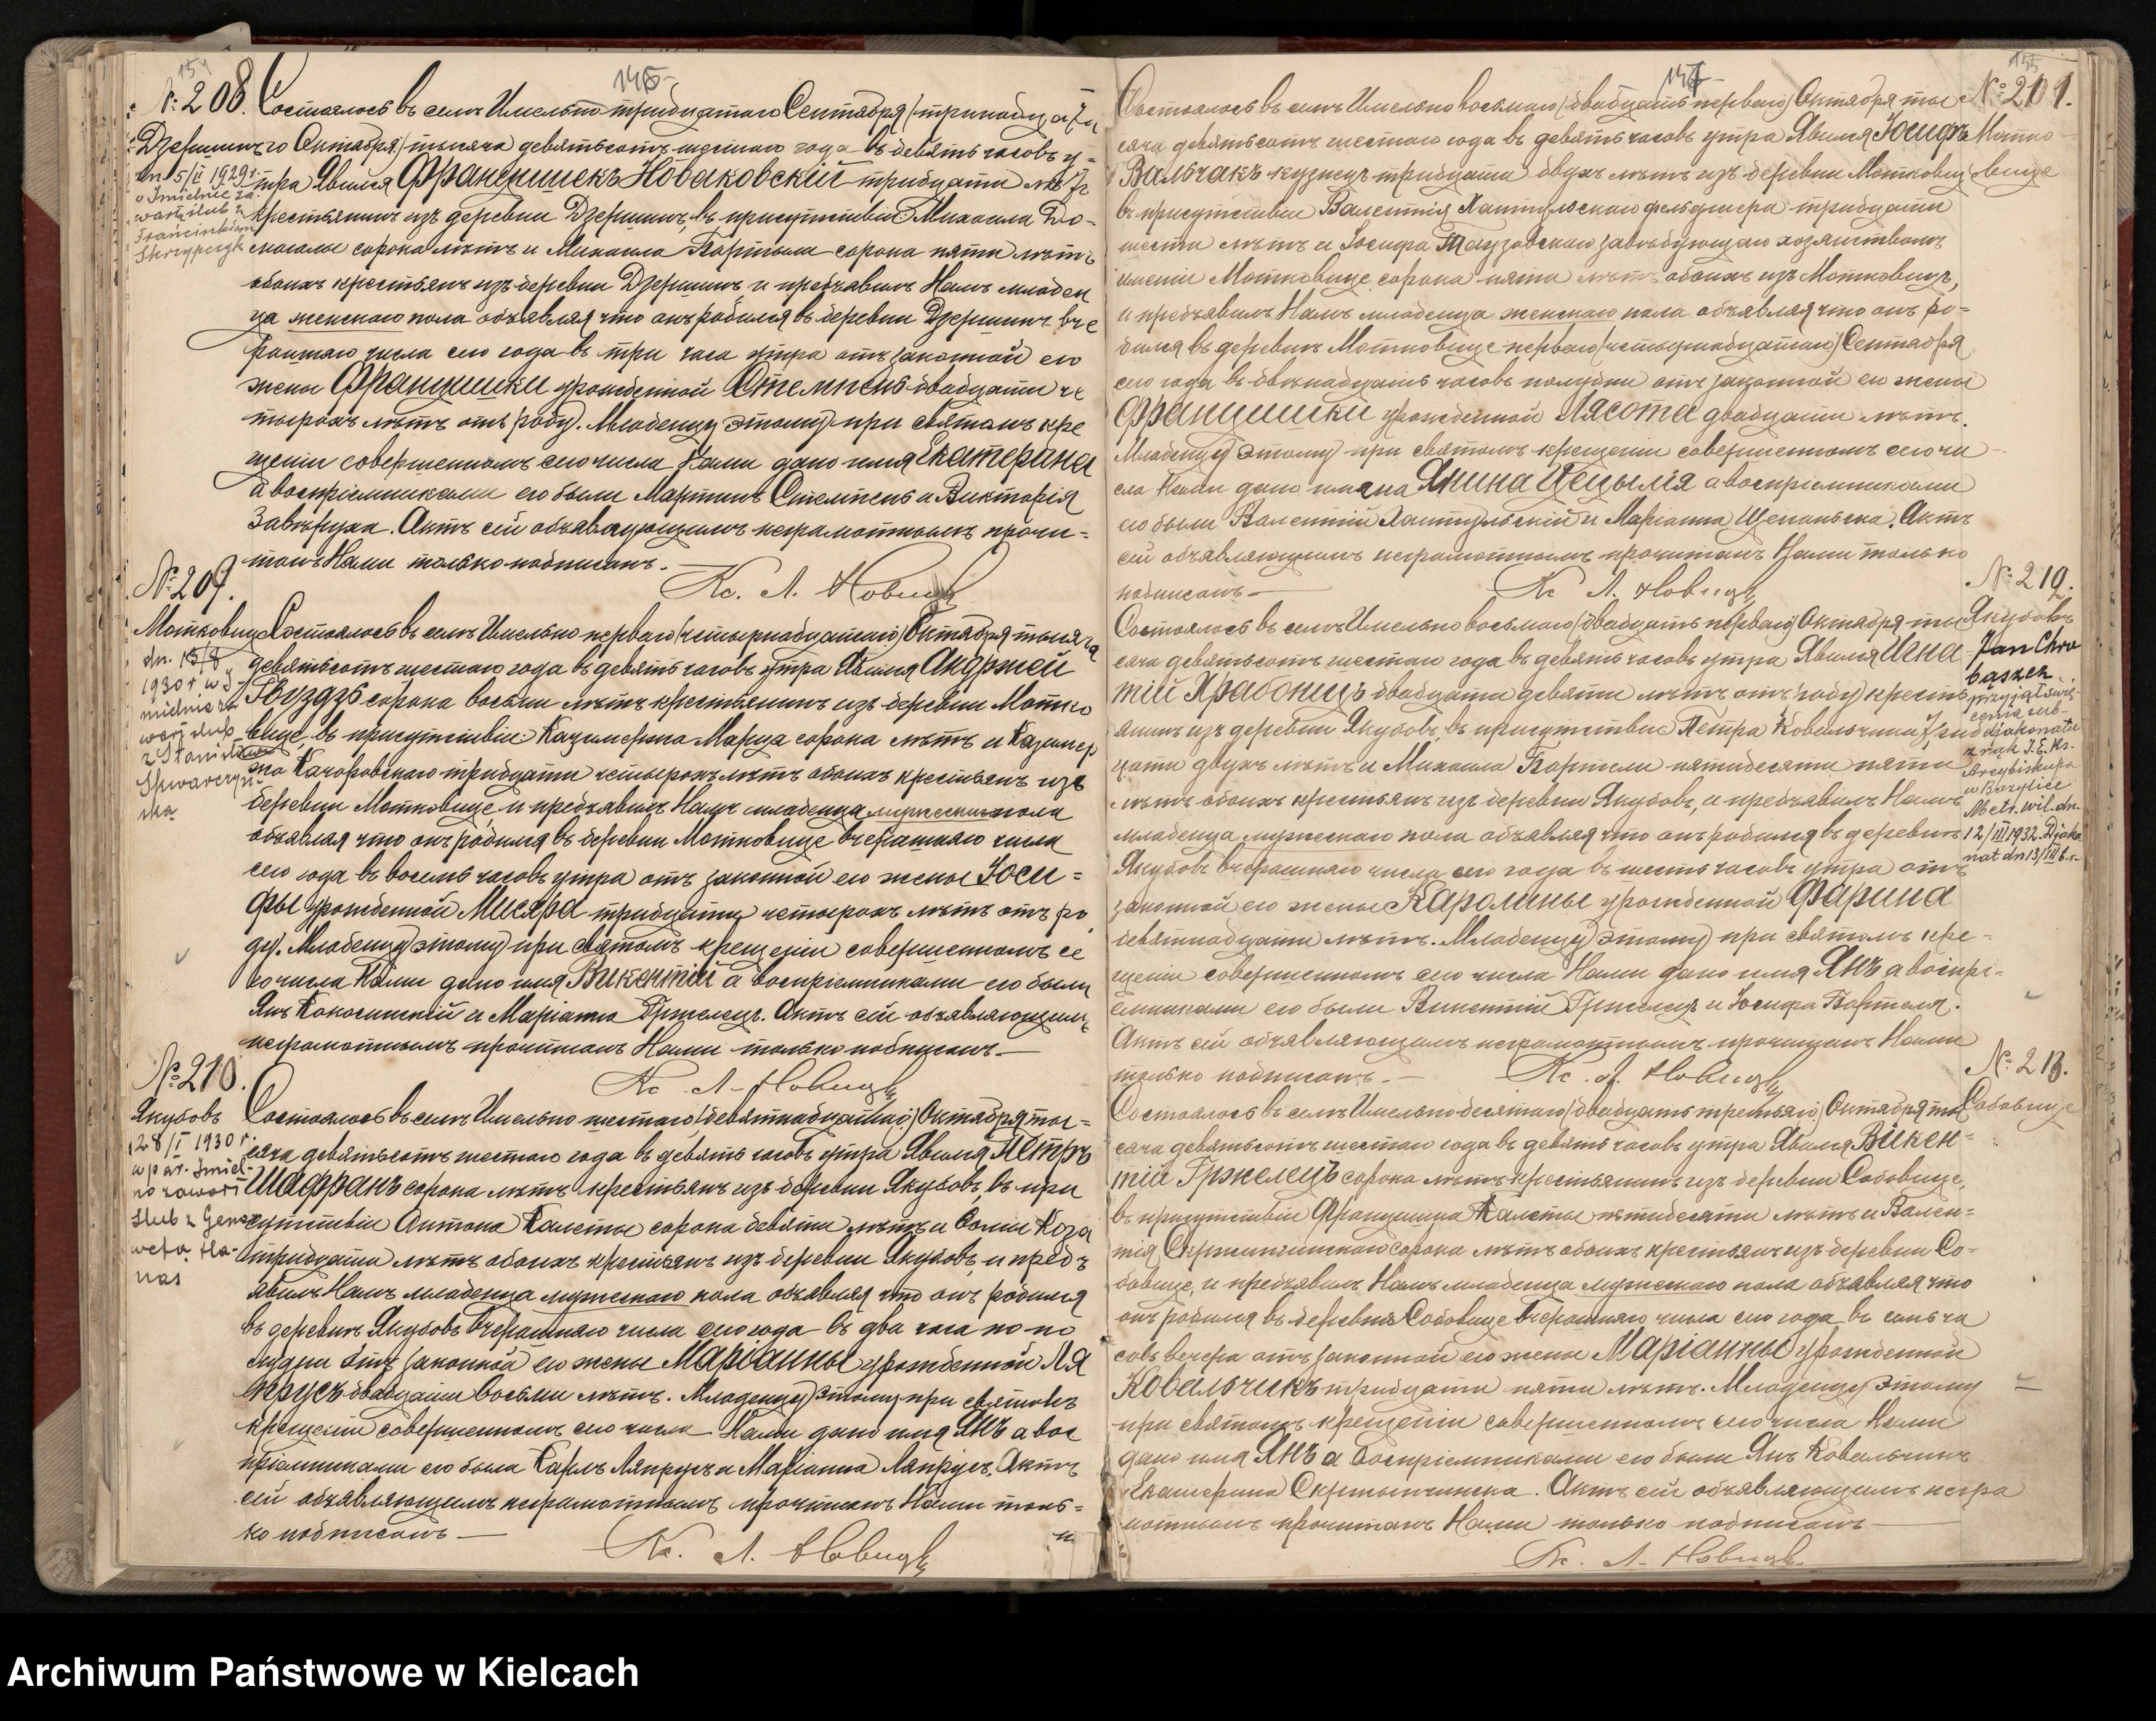 151
145
№ 208.
Дзержинъ
dn. 5/II 1929 r.
w Imielnie za-
warła ślub z
Franciszkiem
Skrzypczyk
Состоялось въ селѣ Имельно тридцатаго Сентября /тринадцата
го Октября/ тысяча девятьсотъ шестаго года въ девять часовъ у-
тра Явился Францишекъ Новаковскій тридцати лѣтъ
крестьянинъ изъ деревни Дзержинъ, въ присутствіи Михаила До-
магалы сорока лѣтъ и Михаила Бартыля сорока пяти лѣтъ
обоихъ крестьянъ изъ деревни Дзержинъ и предъявилъ Намъ младен
ца женскаго пола объявляя что онъ родился въ деревни Дзержинъ вче
рашняго числа сего года въ три часа утра отъ законной его
жены Францишки урожденной Стемпень двадцати че
тырехъ лѣтъ отъ роду. Младенцу этому при святомъ кре
щеніи совершенномъ сего числа Нами дано имя Екатерина
а воспріемниками его были Мартинъ Стемпень и Викторія
Завѣруха. Актъ сей объявляющимъ неграмотнымъ прочи-
танъ Нами только подписанъ.
Кс. Л. Новицкі
№ 209.
Мотковице
dn. 15/8
1930 r. w I-
mielnie za
warł ślub
z Stanisławą
Skwarczyń
ską
Состоялось въ селѣ Имельно перваго /четырнадцатаго/ Октября тысяча
девятьсотъ шестаго года въ девять часовъ утра Явился Андржей
Гвуздзь сорока восьми лѣтъ крестьянинъ изъ деревни Мотко
вице, въ присутствіи Казимержа Марца сорока лѣтъ и Казимер
жа Качоровскаго тридцати четырехъ лѣтъ обоихъ крестьянъ изъ
деревни Мотковице, и предъявилъ Намъ младенца мужескаго пола
объявляя что онъ родился въ деревни Мотковице вчерашняго числа
сего года въ восемь часовъ утра отъ законной его жены Юсе-
фы урожденной Мисяра тридцати четырехъ лѣтъ отъ ро
ду. Младенцу этому при святомъ крещеніи совершенномъ се
го числа Нами дано имя Викентій а воспріемниками его были
Янъ Кокосинскій и Маріанна Гржелецъ. Актъ сей объявляющимъ
неграмотнымъ прочитанъ Нами только подписанъ.
Кс. Л. Новицкі
№ 210.
Якубовъ
28/I 1930 r.
w par. Imiel-
no zawarł
ślub z Geno
wefą Ha-
nas
Состоялось въ селѣ Имельно шестаго /девятнадцатаго/ Октября ты-
сяча девятьсотъ шестаго года въ девять часовъ утра Явился Петръ
Шафранъ сорока лѣтъ крестьянъ изъ деревни Якубовъ, въ при
сутствіи Антона Калеты сорока девяти лѣтъ и Фомы Коза
тридцати лѣтъ обоихъ крестьянъ изъ деревни Якубовъ, и предъ
явилъ Намъ младенца мужескаго пола объявляя что онъ родился
въ деревнѣ Якубовъ вчерашняго числа сего года въ два часа по по
лудни отъ законной его жены Маріанны урожденной Ля
прусъ двадцати восьми лѣтъ. Младенцу этому при святомъ
крещеніи совершенномъ сего числа Нами дано имя Янъ а вос
пріемниками его были Карлъ Ляпрусъ и Маріанна Ляпрусъ. Актъ
сей объявляющимъ неграмотнымъ прочитанъ Нами толь-
ко подписанъ
Кс. Л. Новицкі
147
155
№ 211.
Мотко-
вице
Состоялось въ селѣ Имельно восьмаго /двадцать перваго/ Октября ты
сяча девятьсотъ шестаго года въ девять часовъ утра Явился Юсифъ
Вальчакъ кузнецъ тридцати двухъ лѣтъ изъ деревни Мотковице
въ присутствіи Валентія фельдшера тридцати
шести лѣтъ и Іосифа завѣдующаго хозяйствомъ
имѣніи Мотковице сорока пяти лѣтъ обоихъ изъ Мотковицъ,
и предъявилъ Намъ младенца женскаго пола объявляя что онъ ро-
дился въ деревнѣ Мотковице перваго /четырнадцатаго/ Сентября
сего года въ двѣнадцать часовъ полудни отъ законной его жены
Францишки урожденной Лясота двадцати лѣтъ.
Младенцу этому при святомъ крещеніи совершенномъ сего чи
сла Нами дано имена Янина Цецылія а воспріемниками
его были Валентій и Маріанна Щепаньска. Актъ
сей объявляющимъ неграмотнымъ прочитанъ Нами только
подписанъ
Кс. Л. Новицкі
№ 212.
Якубовъ
Jan Chro
bąszcz
przyjął świę-
cenia sub-
diakonatu
z rąk J. E. Ks.
Arcybiskupa
w Bazylice
Metr. wil. dn.
12/III 1932. Djako
nat dn 13/III b.r.
Состоялось въ селѣ Имельно восьмаго /двадцать перваго/ Октября ты
сяча девятьсотъ шестаго года въ девять часовъ утра Явился Игна
тій Храбонщъ двадцати девяти лѣтъ отъ роду крестья
янинъ изъ деревни Якубовъ, въ присутствіи Петра Ковальчика
цати двухъ лѣтъ и Михаила Бартели пятидесяти пяти
лѣтъ обоихъ крестьянъ изъ деревни Якубовъ, и предъявилъ Намъ
младенца мужескаго пола объявляя что онъ родился въ деревнѣ
Якубовъ вчерашняго числа сего года въ шесть часовъ утра отъ
законной его жены Каролины урожденной Фарына
девятнадцати лѣтъ. Младенцу этому при святомъ кре-
щеніи совершенномъ сего числа Нами дано имя Янъ а воспрі-
емниками его были Викентій Гржелецъ и Юсифа Бартель.
Актъ сей объявляющимъ неграмотнымъ прочитанъ Нами
только подписанъ.
Кс. Л. Новицкі
№ 213.
Собовице
Состоялось въ селѣ Имельно десятаго /двадцать третьяго/ Октября ты
сяча девятьсотъ шестаго года въ девять часовъ утра Явился Викен-
тій Гржелецъ сорока лѣтъ крестьянинъ изъ деревни Собовице,
въ присутствіи Францишка Калеты пятидесяти лѣтъ и Вален-
тія сорока лѣтъ обоихъ крестьянъ изъ деревни Со-
бовице, и предъявилъ Намъ младенца мужескаго пола объявляя что
онъ родился въ деревнѣ Собовице вчерашняго числа сего года въ семь ча
совъ вечера отъ законной его жены Маріанны урожденной
Ковальчикъ тридцати пяти лѣтъ. Младенцу этому
при святомъ крещеніи совершенномъ сего числа Нами
дано имя Янъ а воспріемниками его были Янъ Ковальчикъ
Екатерина Скртыпчинска. Актъ сей объявляющимъ негра
мотнымъ прочитанъ Нами только подписанъ
Кс. Л. Новицкі
Archiwum Państwowe w Kielcach